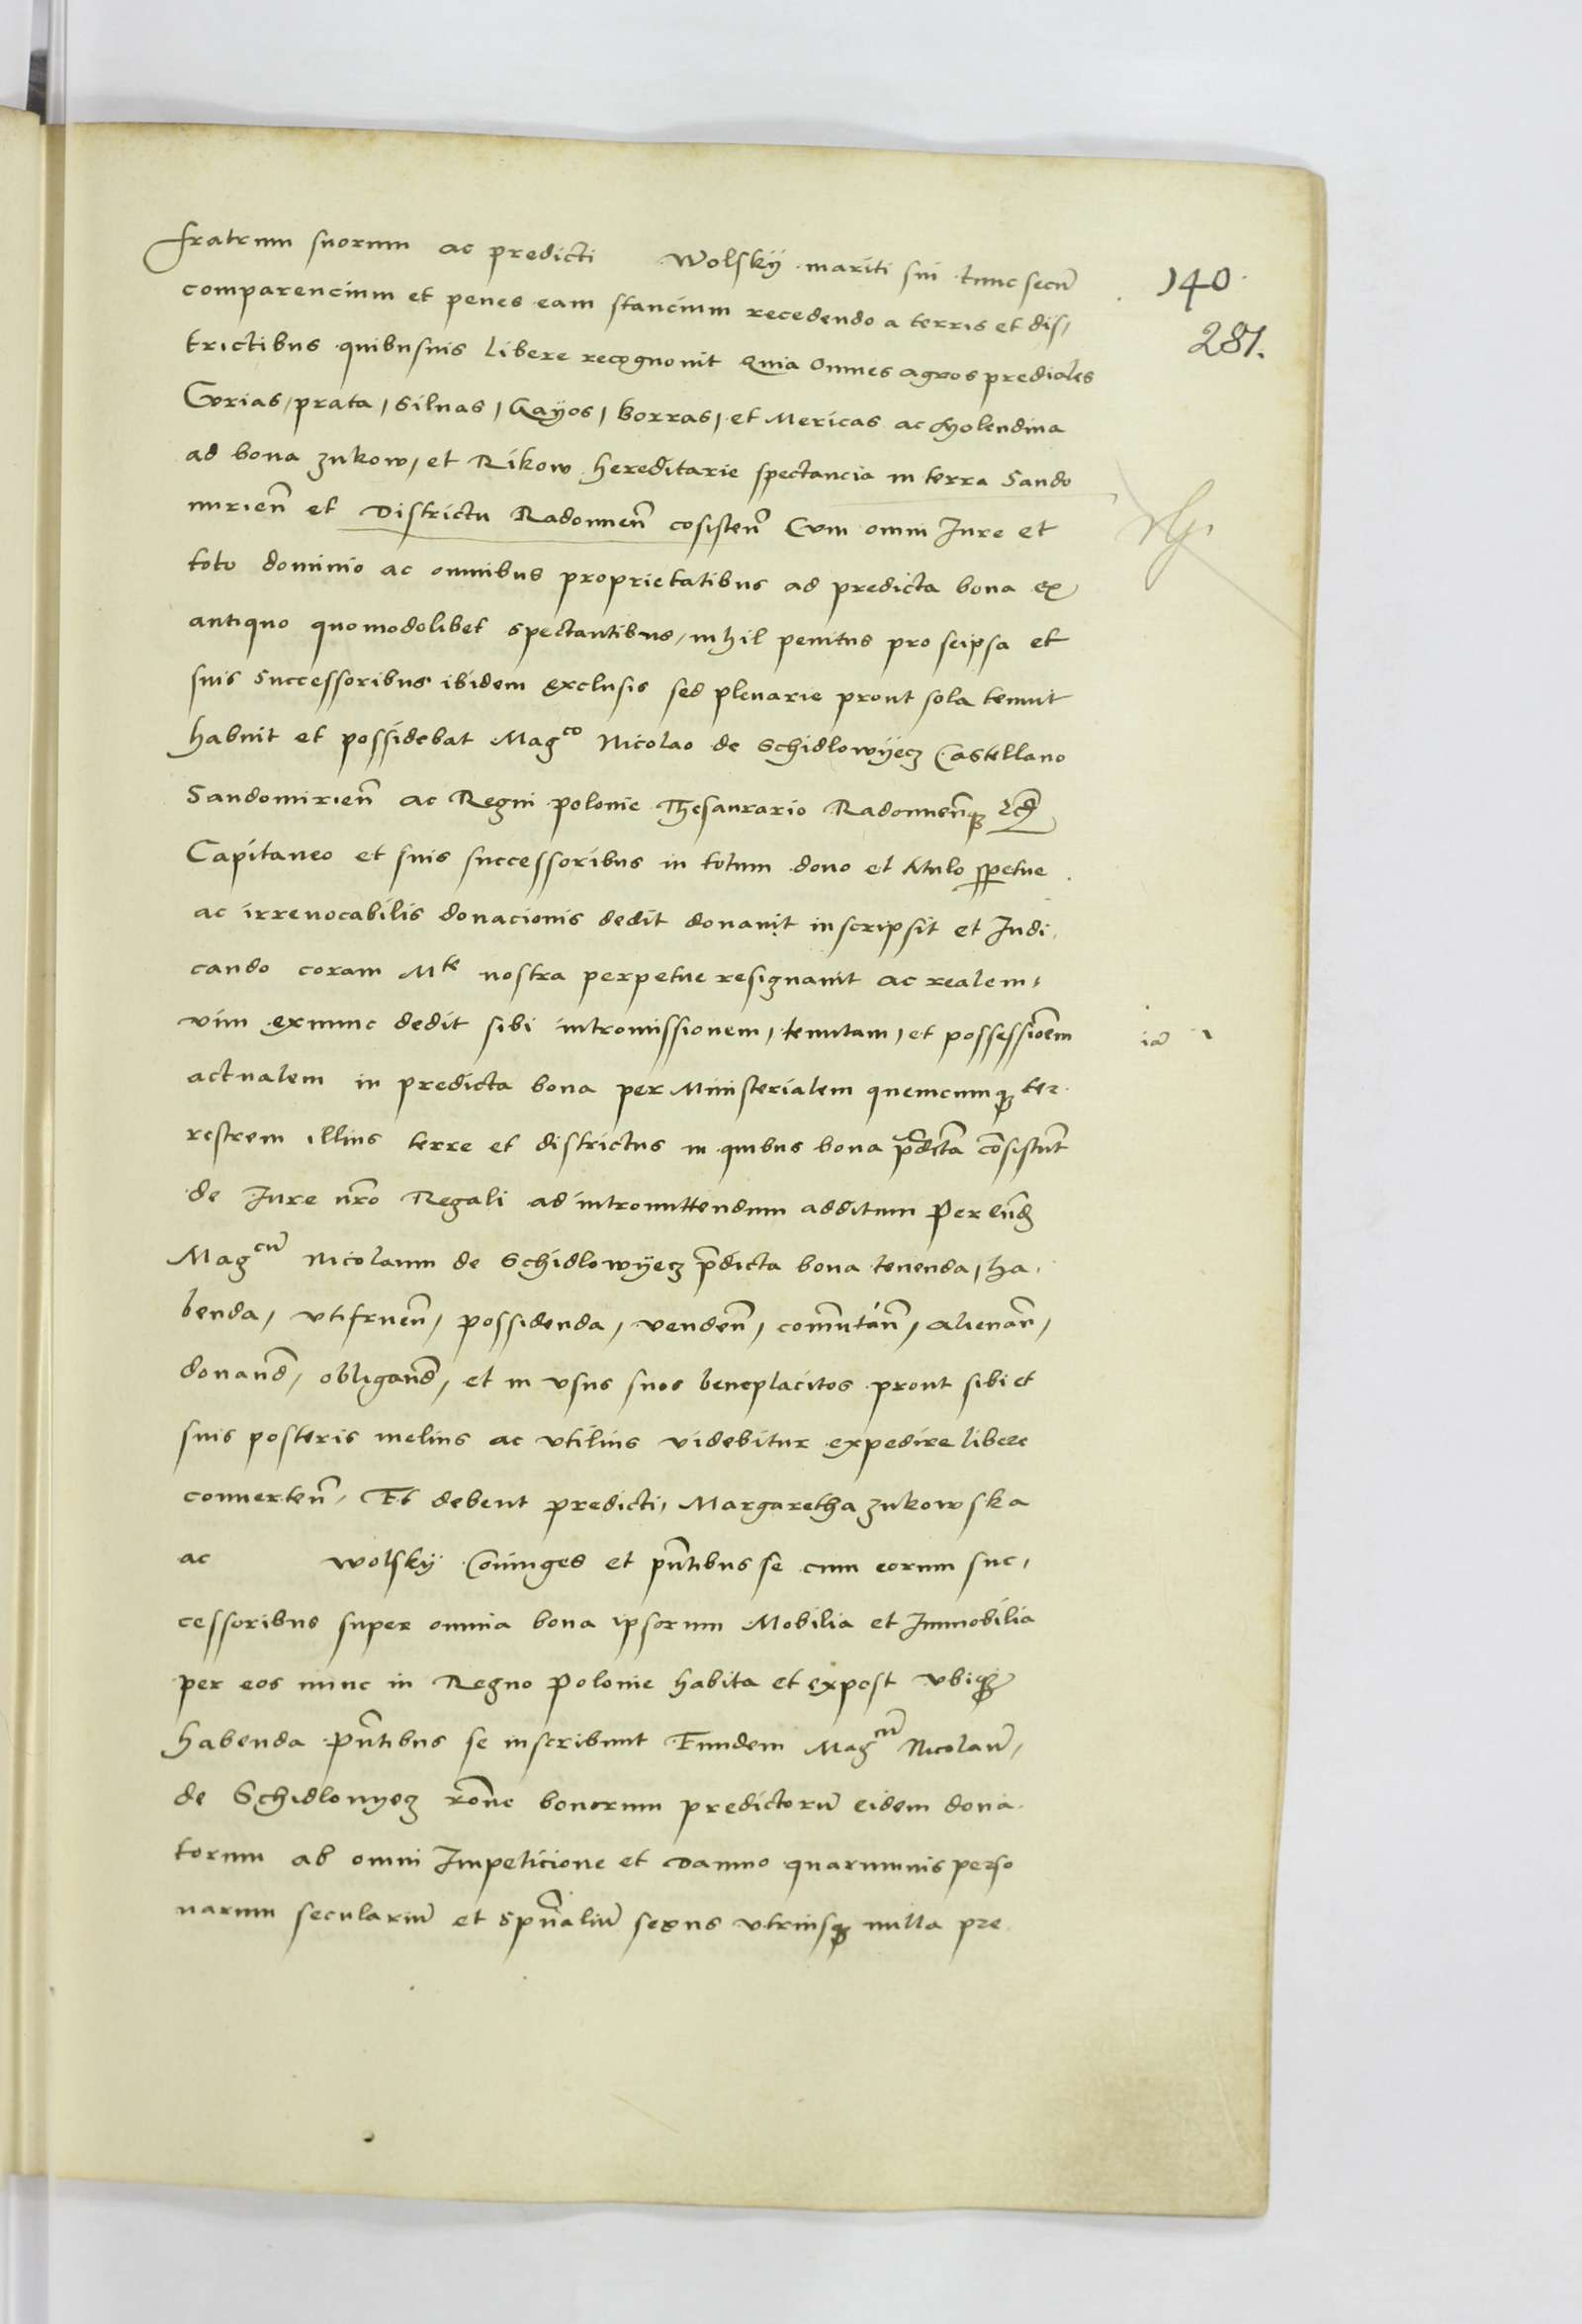 fratrum suorum ac predicti Wolskÿ mariti sui tunc secū
140
comparencium et penes eam stancium recedendo a terris et dis/
281.
trictibus quibusuis Libere recognouit Quia Omnes agros prediales
Curias / prata / Siluas / Gayos / Borras / et Mericas ac Molendina
ad bona zukow / et Rikow hereditarie spectancia in terra Sando
mirien̄ et Districtu Radomien̄ cosisten̄ Cum omni Jure et
toto dominio ac omnibus proprietatibus ad predicta bona ex
antiquo quomodolibet spectantibus / nihil penitus pro seipsa et
suis Successoribus ibidem exclusis sed plenarie prout sola tenuit
habuit et possidebat Magco Nicolao de Schidlowÿecz Castellano
Sandomirien̄ ac Regni polonie Thesaurario Radomien̄qz
Capitaneo et suis successoribus in totum dono et titulo ꝑpetue
ac irreuocabilis donacionis dedit donauit inscripsit et Judi
cando coram Mte nostra perpetue resignauit ac realem /
vim exnunc dedit sibi intromissionem / tenutam / et possessiōem
actualem in predicta bona per Ministerialem quemcumqz ter
restrem illius terre et districtus in quibus bona p̄dicta cōsistūt
de Jure nr̄o Regali ad intromittendum additum Per eūd
Magcū Nicolaum de Schidlowÿecz p̄dicta bona tenenda / ha
benda / vtifruen̄ / possidenda / venden̄ / com̄utan̄ / alienan̄ /
donand̄ / obligand̄ / et in vsus suos beneplacitos prout sibi et
suis posteris melius ac vtilius videbitur expedire libere
conuerten̄ / Et debent predicti / Margaretha zukowska
ac wolskÿ Coniuges et pn̄tibus se cum eorum suc /
cessoribus super omnia bona ipsorum Mobilia et Immobilia
per eos nunc in Regno Polonie habita et expost vbiqz
habenda Pn̄tibus se inscribunt Eundem Magcū Nicolaū /
de Schidlouyecz rōne bonorum predictorū eidem dona
torum ab omni Impeticione et Damno quarumuis perso
narum seculariū et Spūaliū sexus vtriusqz nulla pre